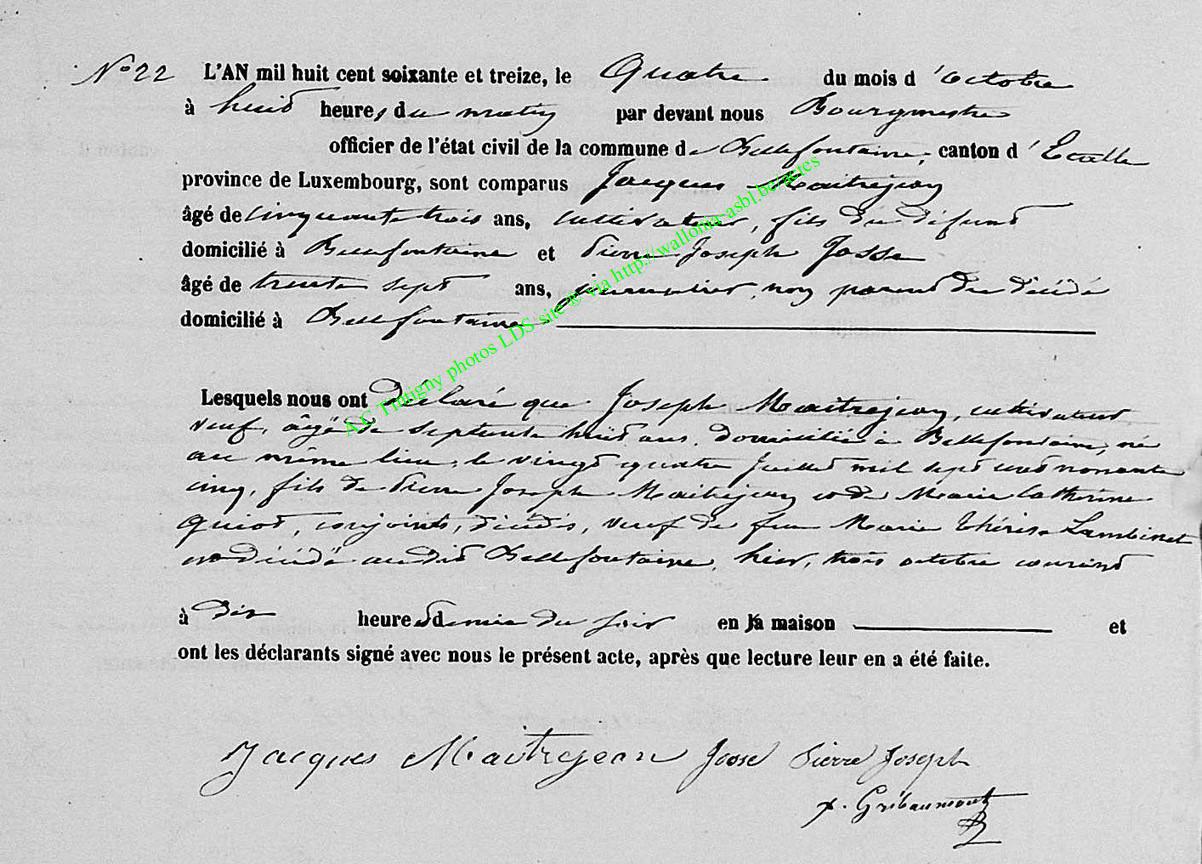 N° 22 L'AN mil huit cent soixante et treize, le Quatre du mois d'octobre
à huit heures du matin par devant nous Bourgmestre
officier de l'état civil de la commune de Bellefontaine, canton d'Etalle
province de Luxembourg, sont comparus Jacques Maitrejean
âgé de cinquante trois ans, cultivateur, fils du défunt
domicilié à Bellefontaine et Pierre Joseph Josse
âgé de trente sept ans, journalier, non parent du décédé
domicilié à Bellefontaine
Lesquels nous ont déclaré que Joseph Maitrejean, cultivateur
veuf, âgé de septante huit ans, domicilié à Bellefontaine, né
au même lieu, le vingt quatre Juillet mil sept cent nonante
cinq, fils de Pierre Joseph Maitrejean et de Marie Catherine
Quiot, conjoints, décédés, veuf de feue Marie Thérèse Lambinet
est décédé au dit Bellefontaine, hier, trois octobre courant
à dix heures et demie du soir en sa maison et
ont les déclarants signé avec nous le présent acte, après que lecture leur en a été faite.
Jacques Maitrejean Josse Pierre Joseph
Gribaumont
A.C Tintigny photos LDS site © via http://wallonia-asbl.be/actes